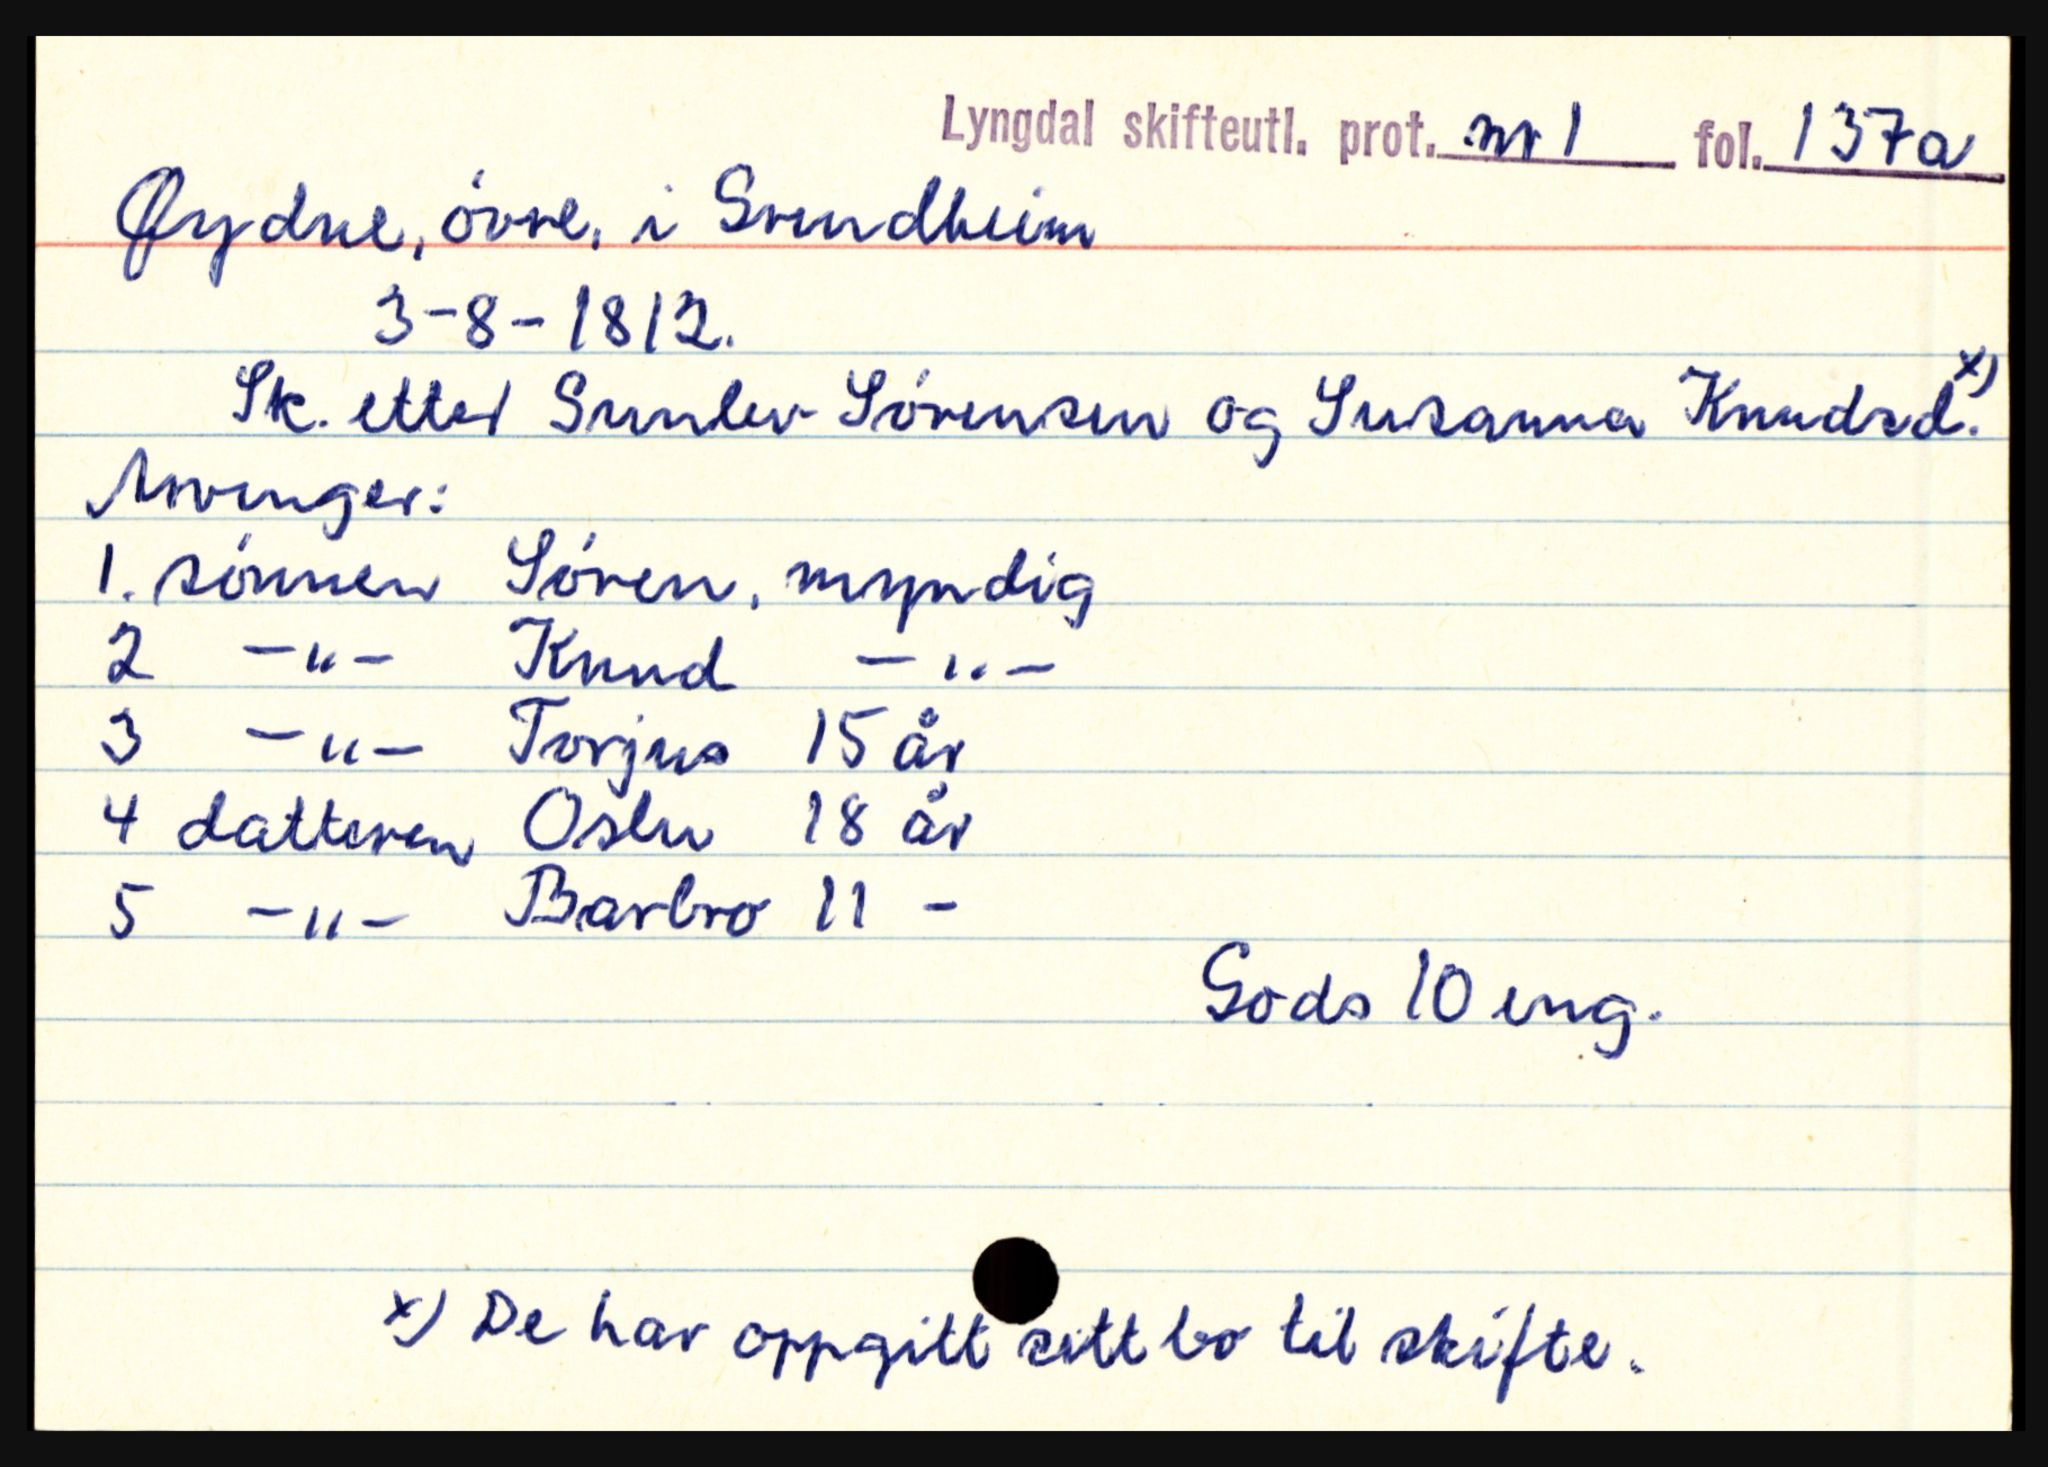 Lyngdal skifteutl. prot. nr 1 fol. 137a
Øydne, óvre, i Grindheim
3-8-1812.
Sk. etter Gunlev Sórensen og Susanna Knudsd. x)
Arvinger:
1. sónnen Sóren, myndig
2 -"- Knud -"-
3 -"- Torjus 15 år
4 datteren Oslu 18 år
5 -"- Barbro 11 -
Gods 10 eng.
x) De har oppgitt sitt bo til skifte.